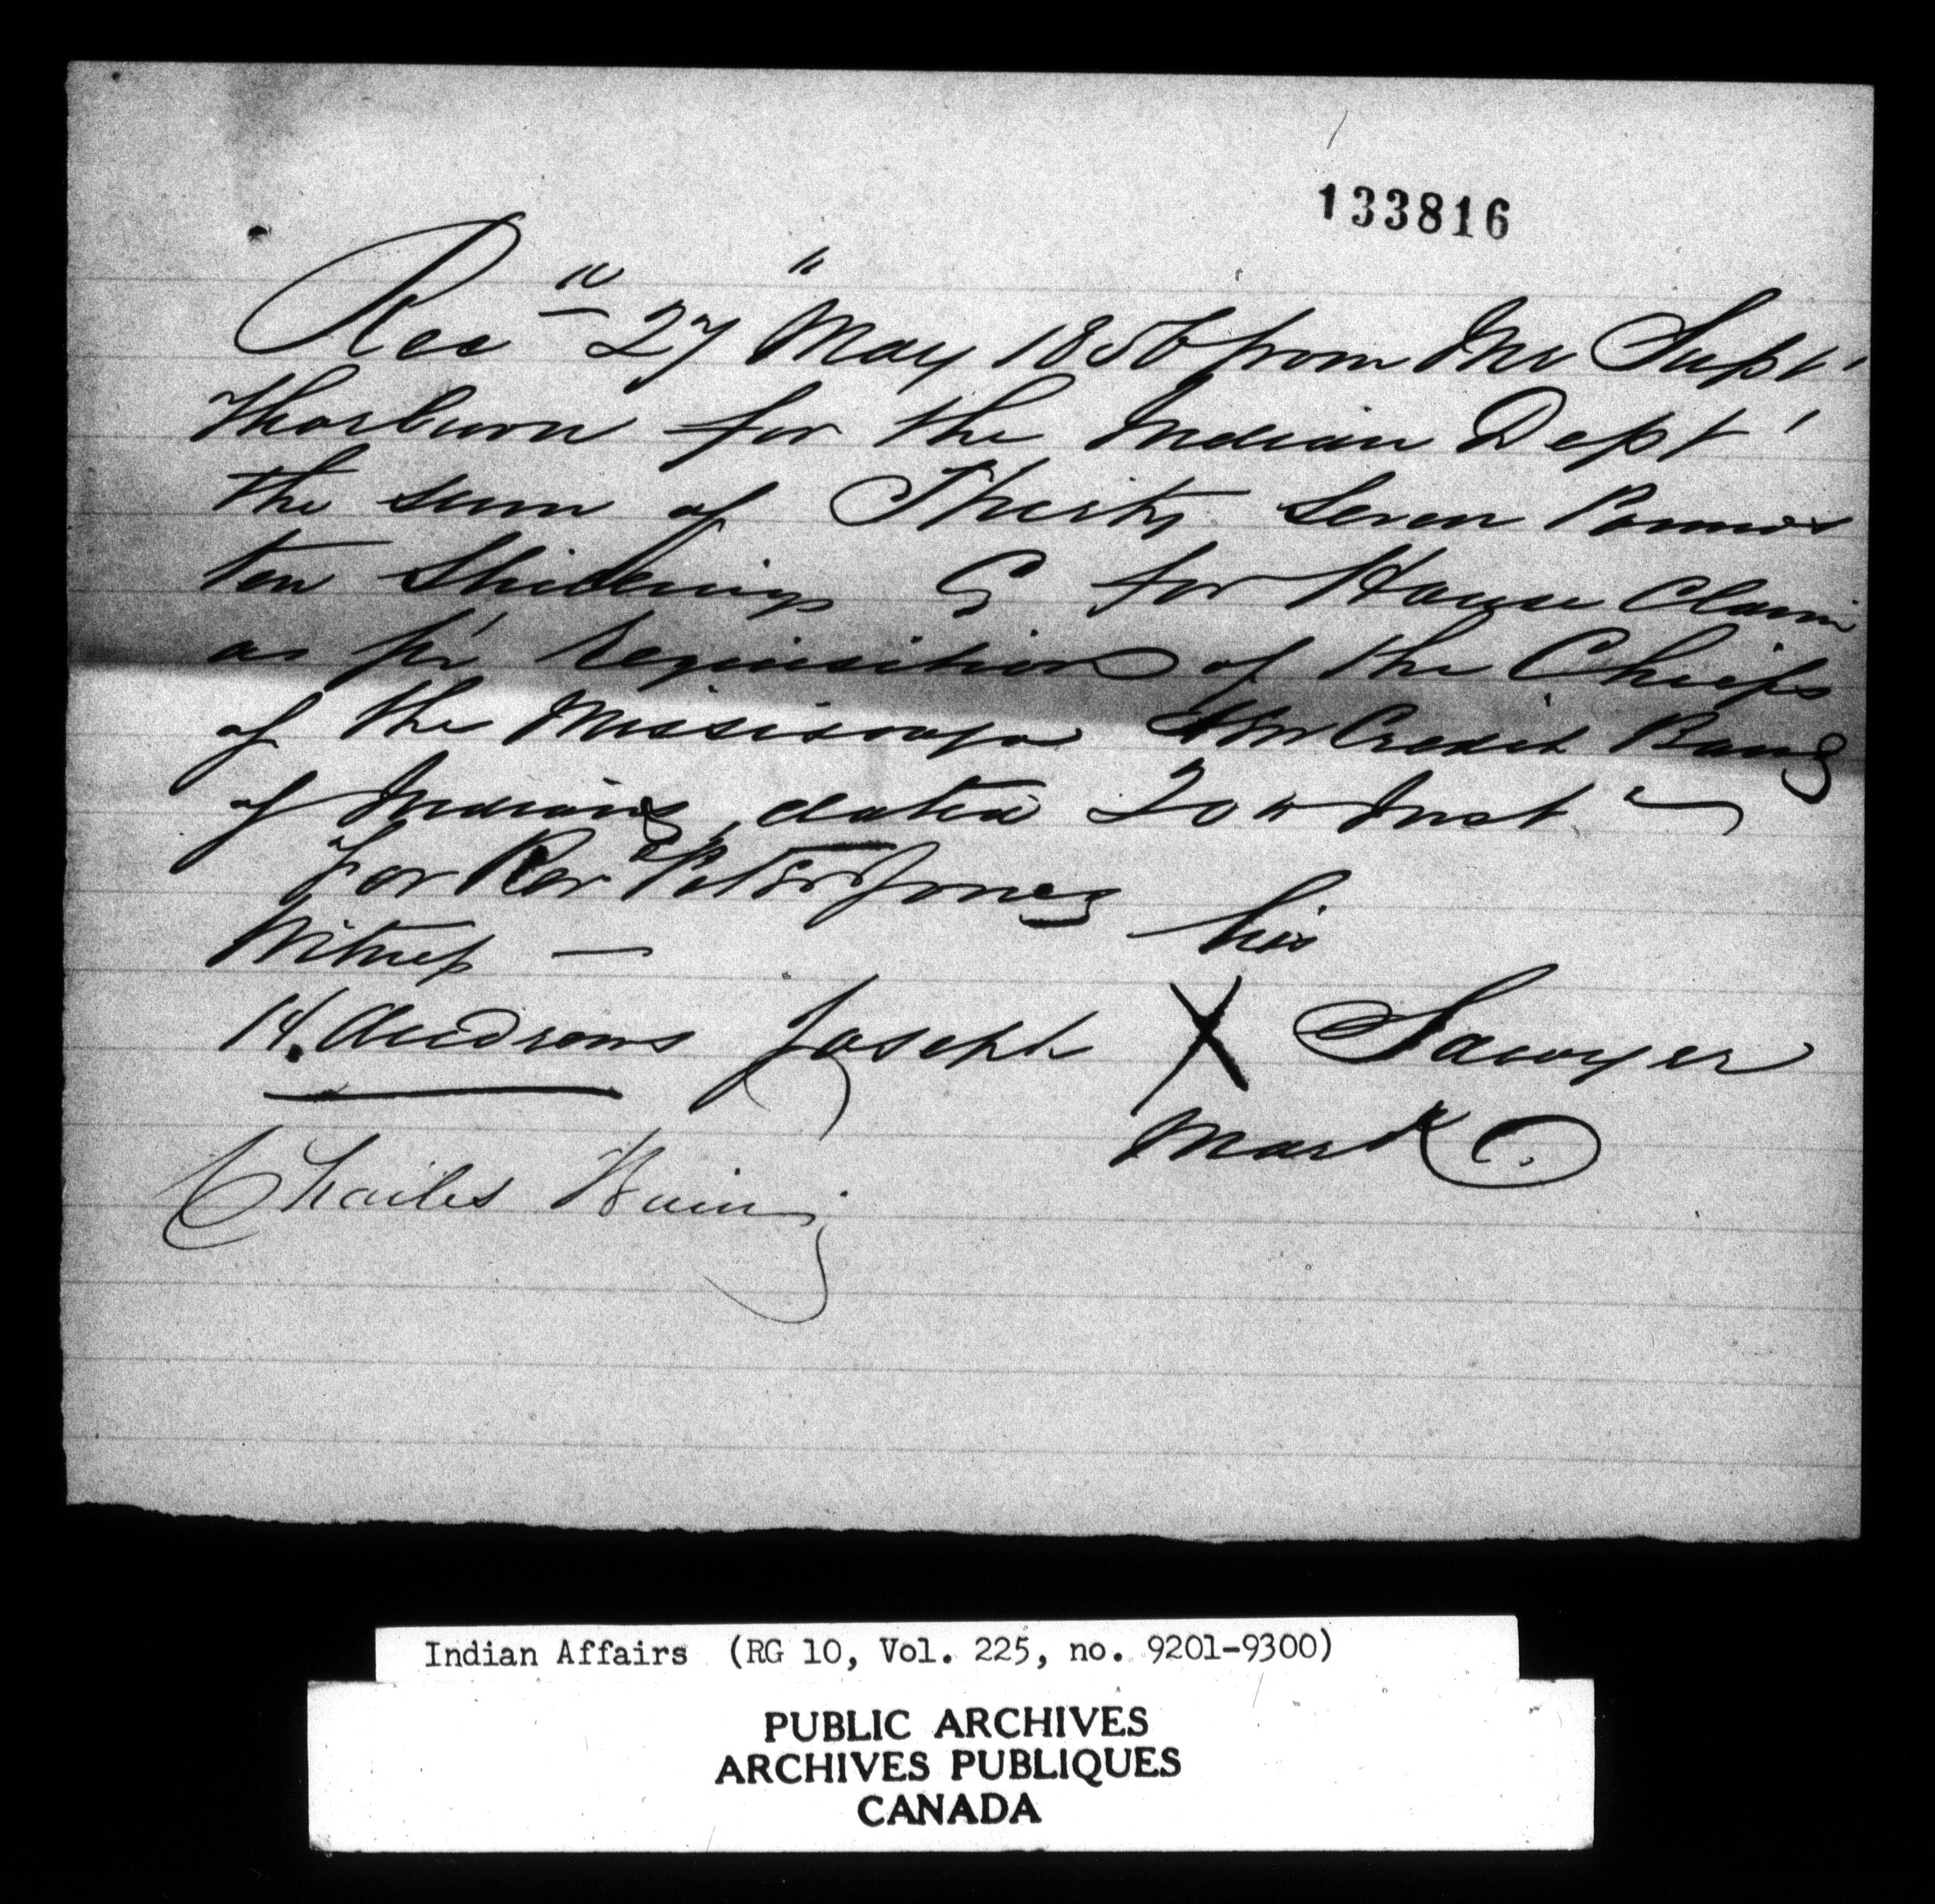 133816
Recd 27" May 1856 from Mr Supt
Thorburn for the Indian Dept
the sum of Thirty Seven Pounds
ten Shillings Cy for House Claim
as pr requisition of the Chiefs
of the Missisauga New Credit Band
of Indians, dated 20" Inst
for Revd Peter Jones
Witness — his
H. Andrews Joseph X Sawyer
mark
Charles
Indian Affairs (RG 10, Vol. 225, no. 9201-9300)
PUBLIC ARCHIVES
ARCHIVES PUBLIQUES
CANADA